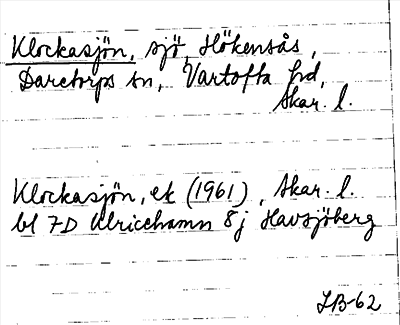 Klockasjön, sjö, Hökensås,
Daretorps sn, Vartofta hd,
Skar. l.
Klockasjön, ek (1961), Skar. l.
bl 7D Ulricehamn 8j Havsjöberg
LB-62